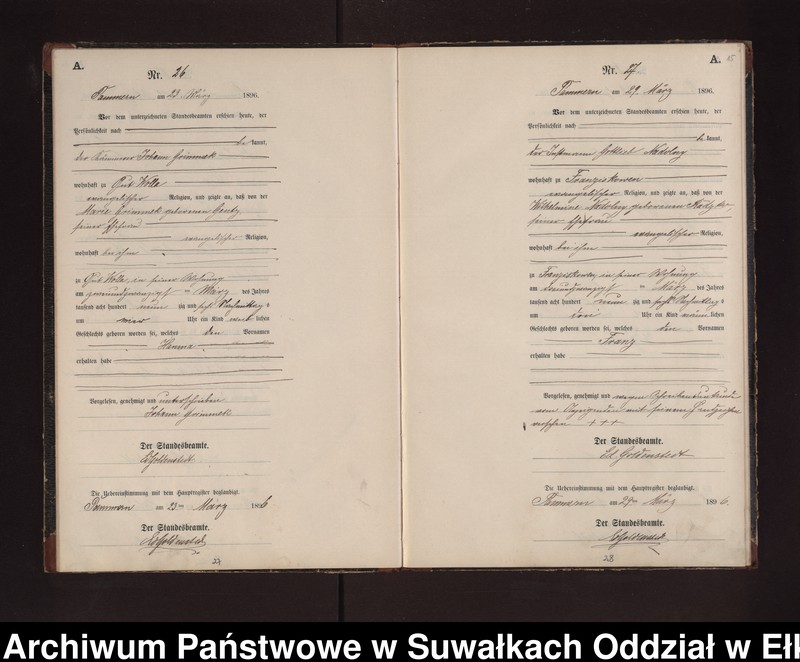 A.
Nr. 26
am 23 März 1896.
Vor dem unterzeichneten Standesbeamten erschien heute, der
Persönlichkeit nach
be kannt,
der Kämmerer Johann
wohnhaft zu Gut Wolla
evangelischer Religion, und zeigte an, daß von der
Marie geborenen
seiner Ehefrau
evangelischer Religion,
wohnhaft bei ihm
zu Gut Wolla, in seiner Wohnung
am ten März des Jahres
tausend acht hundert neun zig und sechs Nachmittag s
um vier Uhr ein Kind weib lichen
Geschlechts geboren worden sei, welches den Vornamen
erhalten habe
Vorgelesen, genehmigt und unterschrieben
Johann
Der Standesbeamte.
Ed Goldenstedt
Die Uebereinstimmung mit dem Hauptregister beglaubigt.
am 23ten März 1896
Der Standesbeamte.
Ed Goldenstedt
27
A.
Nr. 27
am 29. März 1896.
Vor dem unterzeichneten Standesbeamten erschien heute, der
Persönlichkeit nach
be kannt,
der Instmann Gottlieb
wohnhaft zu Franziskowen
evangelischer Religion, und zeigte an, daß von der
Wilhelmine geborenen
seiner Ehefrau
evangelischer Religion,
wohnhaft bei ihm
zu Franziskowen in seiner Wohnung
am ten März des Jahres
tausend acht hundert neun zig und sechs Nachmittag s
um drei Uhr ein Kind männ lichen
Geschlechts geboren worden sei, welches den Vornamen
Franz
erhalten habe
Vorgelesen, genehmigt und wegen Schreibensunkunde
vom Anzeigenden mit seinem Handzeichen
versehen +++
Der Standesbeamte.
Ed Goldenstedt
Die Uebereinstimmung mit dem Hauptregister beglaubigt.
am 29ten März 1896.
Der Standesbeamte.
Ed Goldenstedt
28
Archiwum Państwowe w Suwałkach Oddział w Ełk